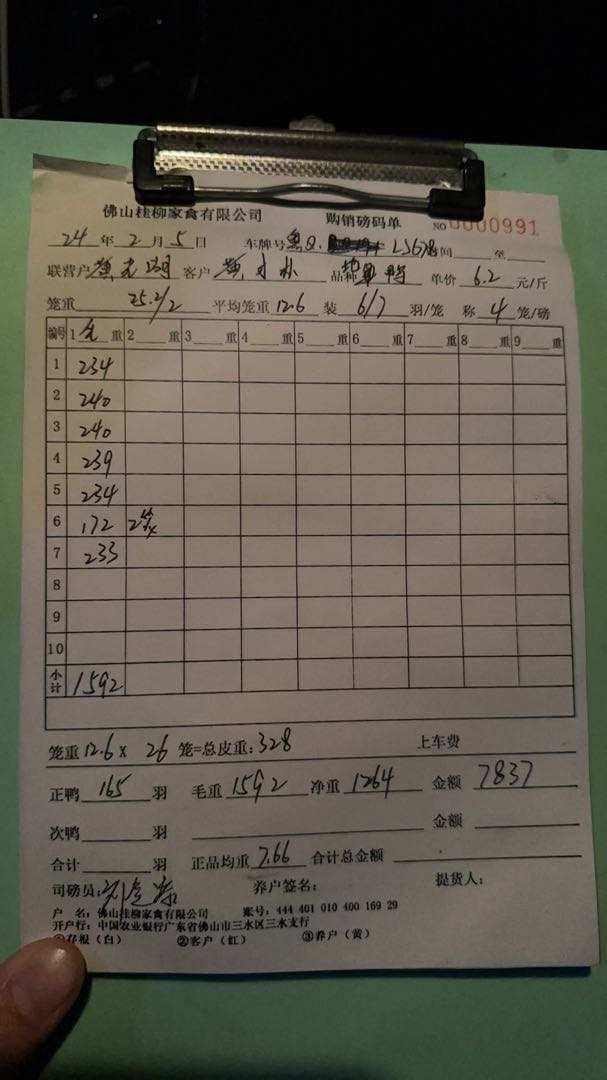 佛山桂柳家禽有限公司 购销磅码单 NO 0000991
24 年 2 月 5 日 车牌号 粤Q. 23678 时间 至
联营户 黄 客户 黄 品种 鸭 单价 6.2 元/斤
笼重 25.2/2 平均笼重 12.6 装 6/7 羽/笼 称 4 笼/磅
编号 1 毛 重 2 重 3 重 4 重 5 重 6 重 7 重 8 重 9 重
1 234
2 240
3 240
4 239
5 234
6 172 2笼
7 233
8
9
10
小计 1592
笼重 12.6 x 26 笼=总皮重: 328 上车费
正鸭 165 羽 毛重 1592 净重 1264 金额 7837
次鸭 羽 金额
合计 羽 正品均重 7.66 合计总金额
司磅员: 养户签名: 提货人:
户 名: 佛山桂柳家禽有限公司 账号: 444 401 010 400 169 29
开户行: 中国农业银行广东省佛山市三水区三水支行
①存根（白） ②客户（红） ③养户（黄）